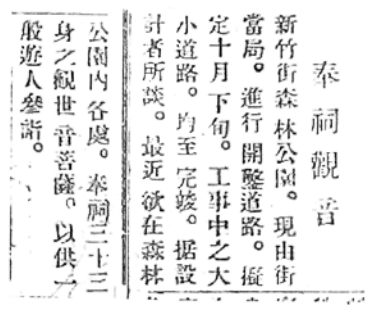 奉祠觀音
新竹街森林公園。現由街
當局。進行開鑿道路。擬
定十月下旬。工事中之大
小道路。均至完竣。据設
計者所談。最近欲在森林
公園內各處。奉祠三十三
身之觀世音菩薩。以供一
般遊人參詣。